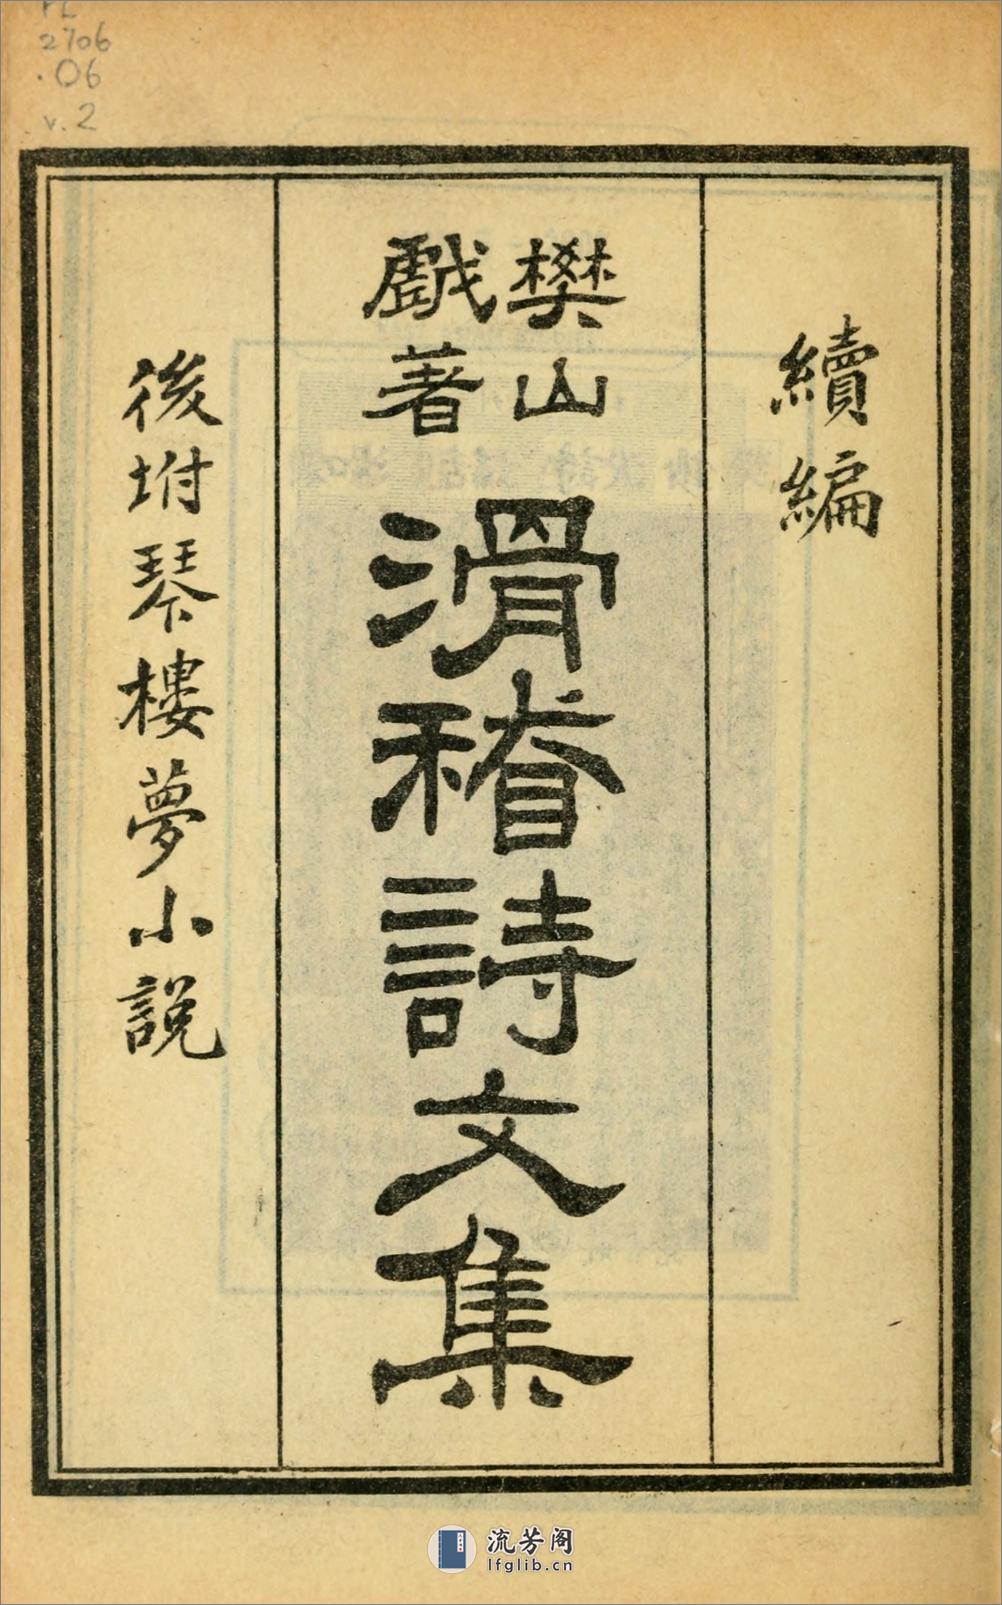 2706
.06
v.2
續編
樊山
戲著
滑稽詩文集
後坿琴樓夢小說
流芳阁
lfglib.cn